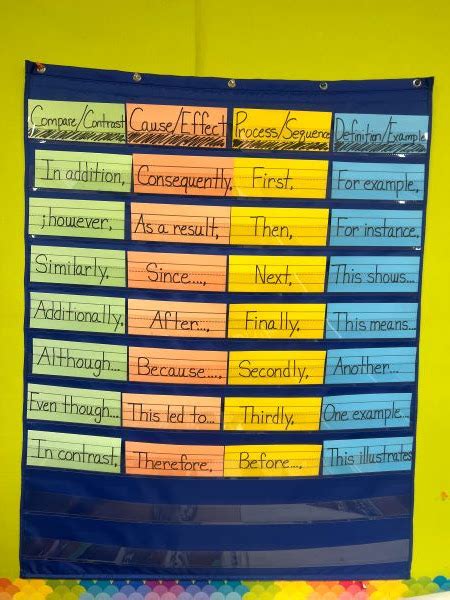 Compare/Contrast Cause/Effect Process/Sequence Definition/Example
In addition, Consequently, First, For example,
;however, As a result, Then, For instance,
Similarly, Since..., Next, This shows...
Additionally, After..., Finally, This means...
Although... Because..., Secondly, Another...
Even though... This led to... Thirdly, One example...
In contrast, Therefore, Before..., This illustrates